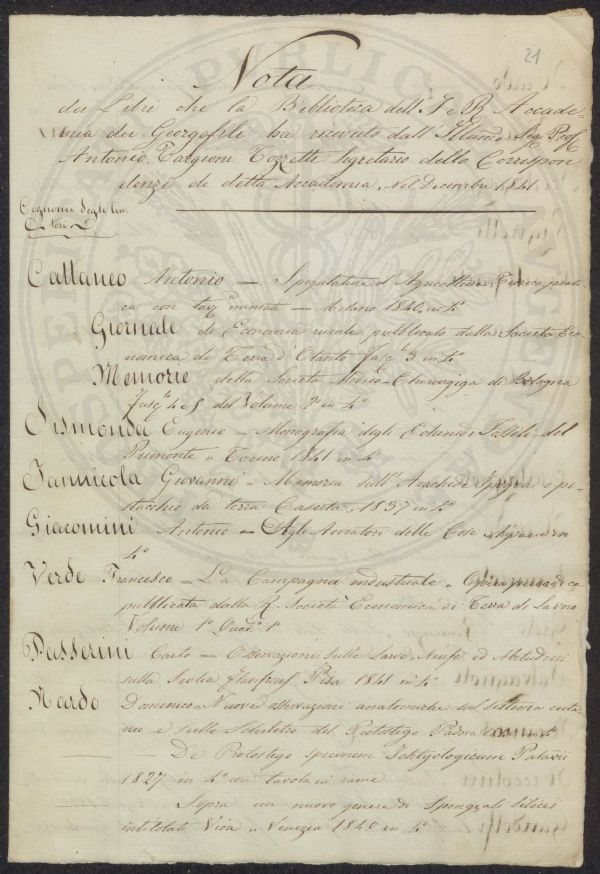 21
Nota
dei Libri che la Biblioteca dell'I. e R. Accade-
mia dei Georgofili ha ricevuto dall'Illmo Sig. Prof.
Antonio Targioni Tozzetti Segretario delle Corrispon
denze di detta Accademia, nel Decembre 1841
Cognomi degli Au
tori
Cattaneo Antonio — Spigolature d'Agricoltura
ca con Milano 1840 in 4°
Giornale di Economia rurale pubblicato dalla Società Eco-
nomica di Terra d'Otranto Fasc. 3 in 4°
Memorie della Società Medico-Chirurgica di Bologna
4 e 5 del Volume 2° in 4°
Sismonda Eugenio — Monografia degli Echinidi Fossili del
Piemonte „ Torino 1841 in 4°
Jannicola Giovanni — Memoria sull'Arachide Ipogea o pi-
stacchio da terra Caserta, 1837 in 4°
Giacomini Antonio — Agli Amatori delle Cose Agrarie in
4°
Verde Francesco — La Campagna industriale „ Opera periodica
pubblicata dalla R. Società Economica di Terra di Lavoro
Volume 1° Quad.° 1°
Passerini Carlo — Osservazioni sulle Larve, Ninfe ed Abitudini
sulla Scolia flavifrons Pisa 1841 in 4°
Nardo Domenico — Nuove osservazioni anatomiche sul sistema cuta
neo e sullo Scheletro del Proostego Padova in 4°
— De Proostego specimen Ichtyologicum Patavii
1827 in 4° con tavola in rame
— Sopra un nuovo genere di Spongiali Silicei
intitolato Vioa „ Venezia 1840 in 4°